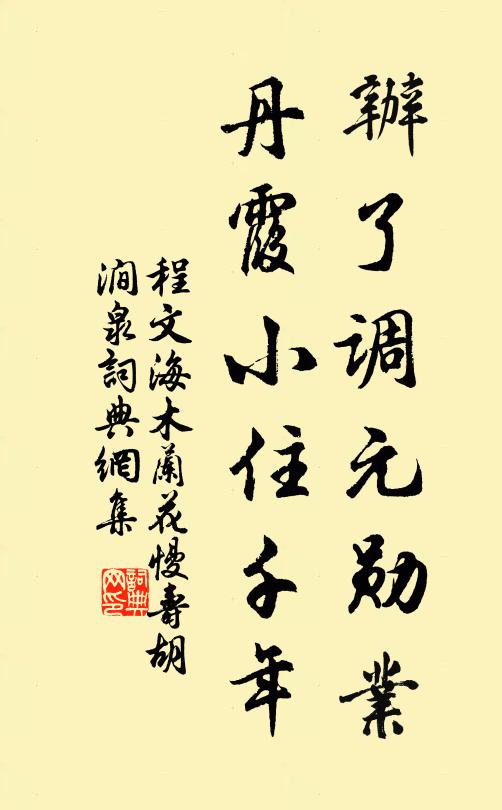 辦了调元勋業
丹霞小住千年
程文海木蘭花慢壽胡
澗泉詞典網集
詞典
网印